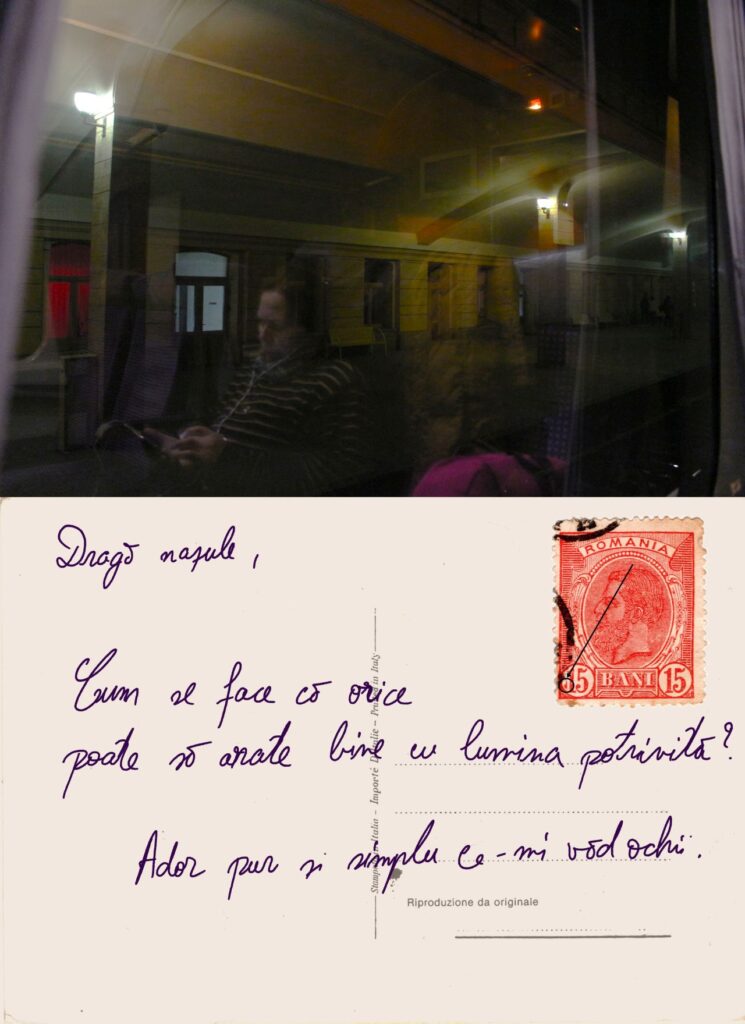 Dragă nașule,
ROMANIA
15 BANI 15
Cum se face că orice
poate să arate bine cu lumina potrivită?
Ador pur și simplu ce-mi văd ochii.
Stampato in Italia – Importé D'Italie – Printed in Italy
Riproduzione da originale